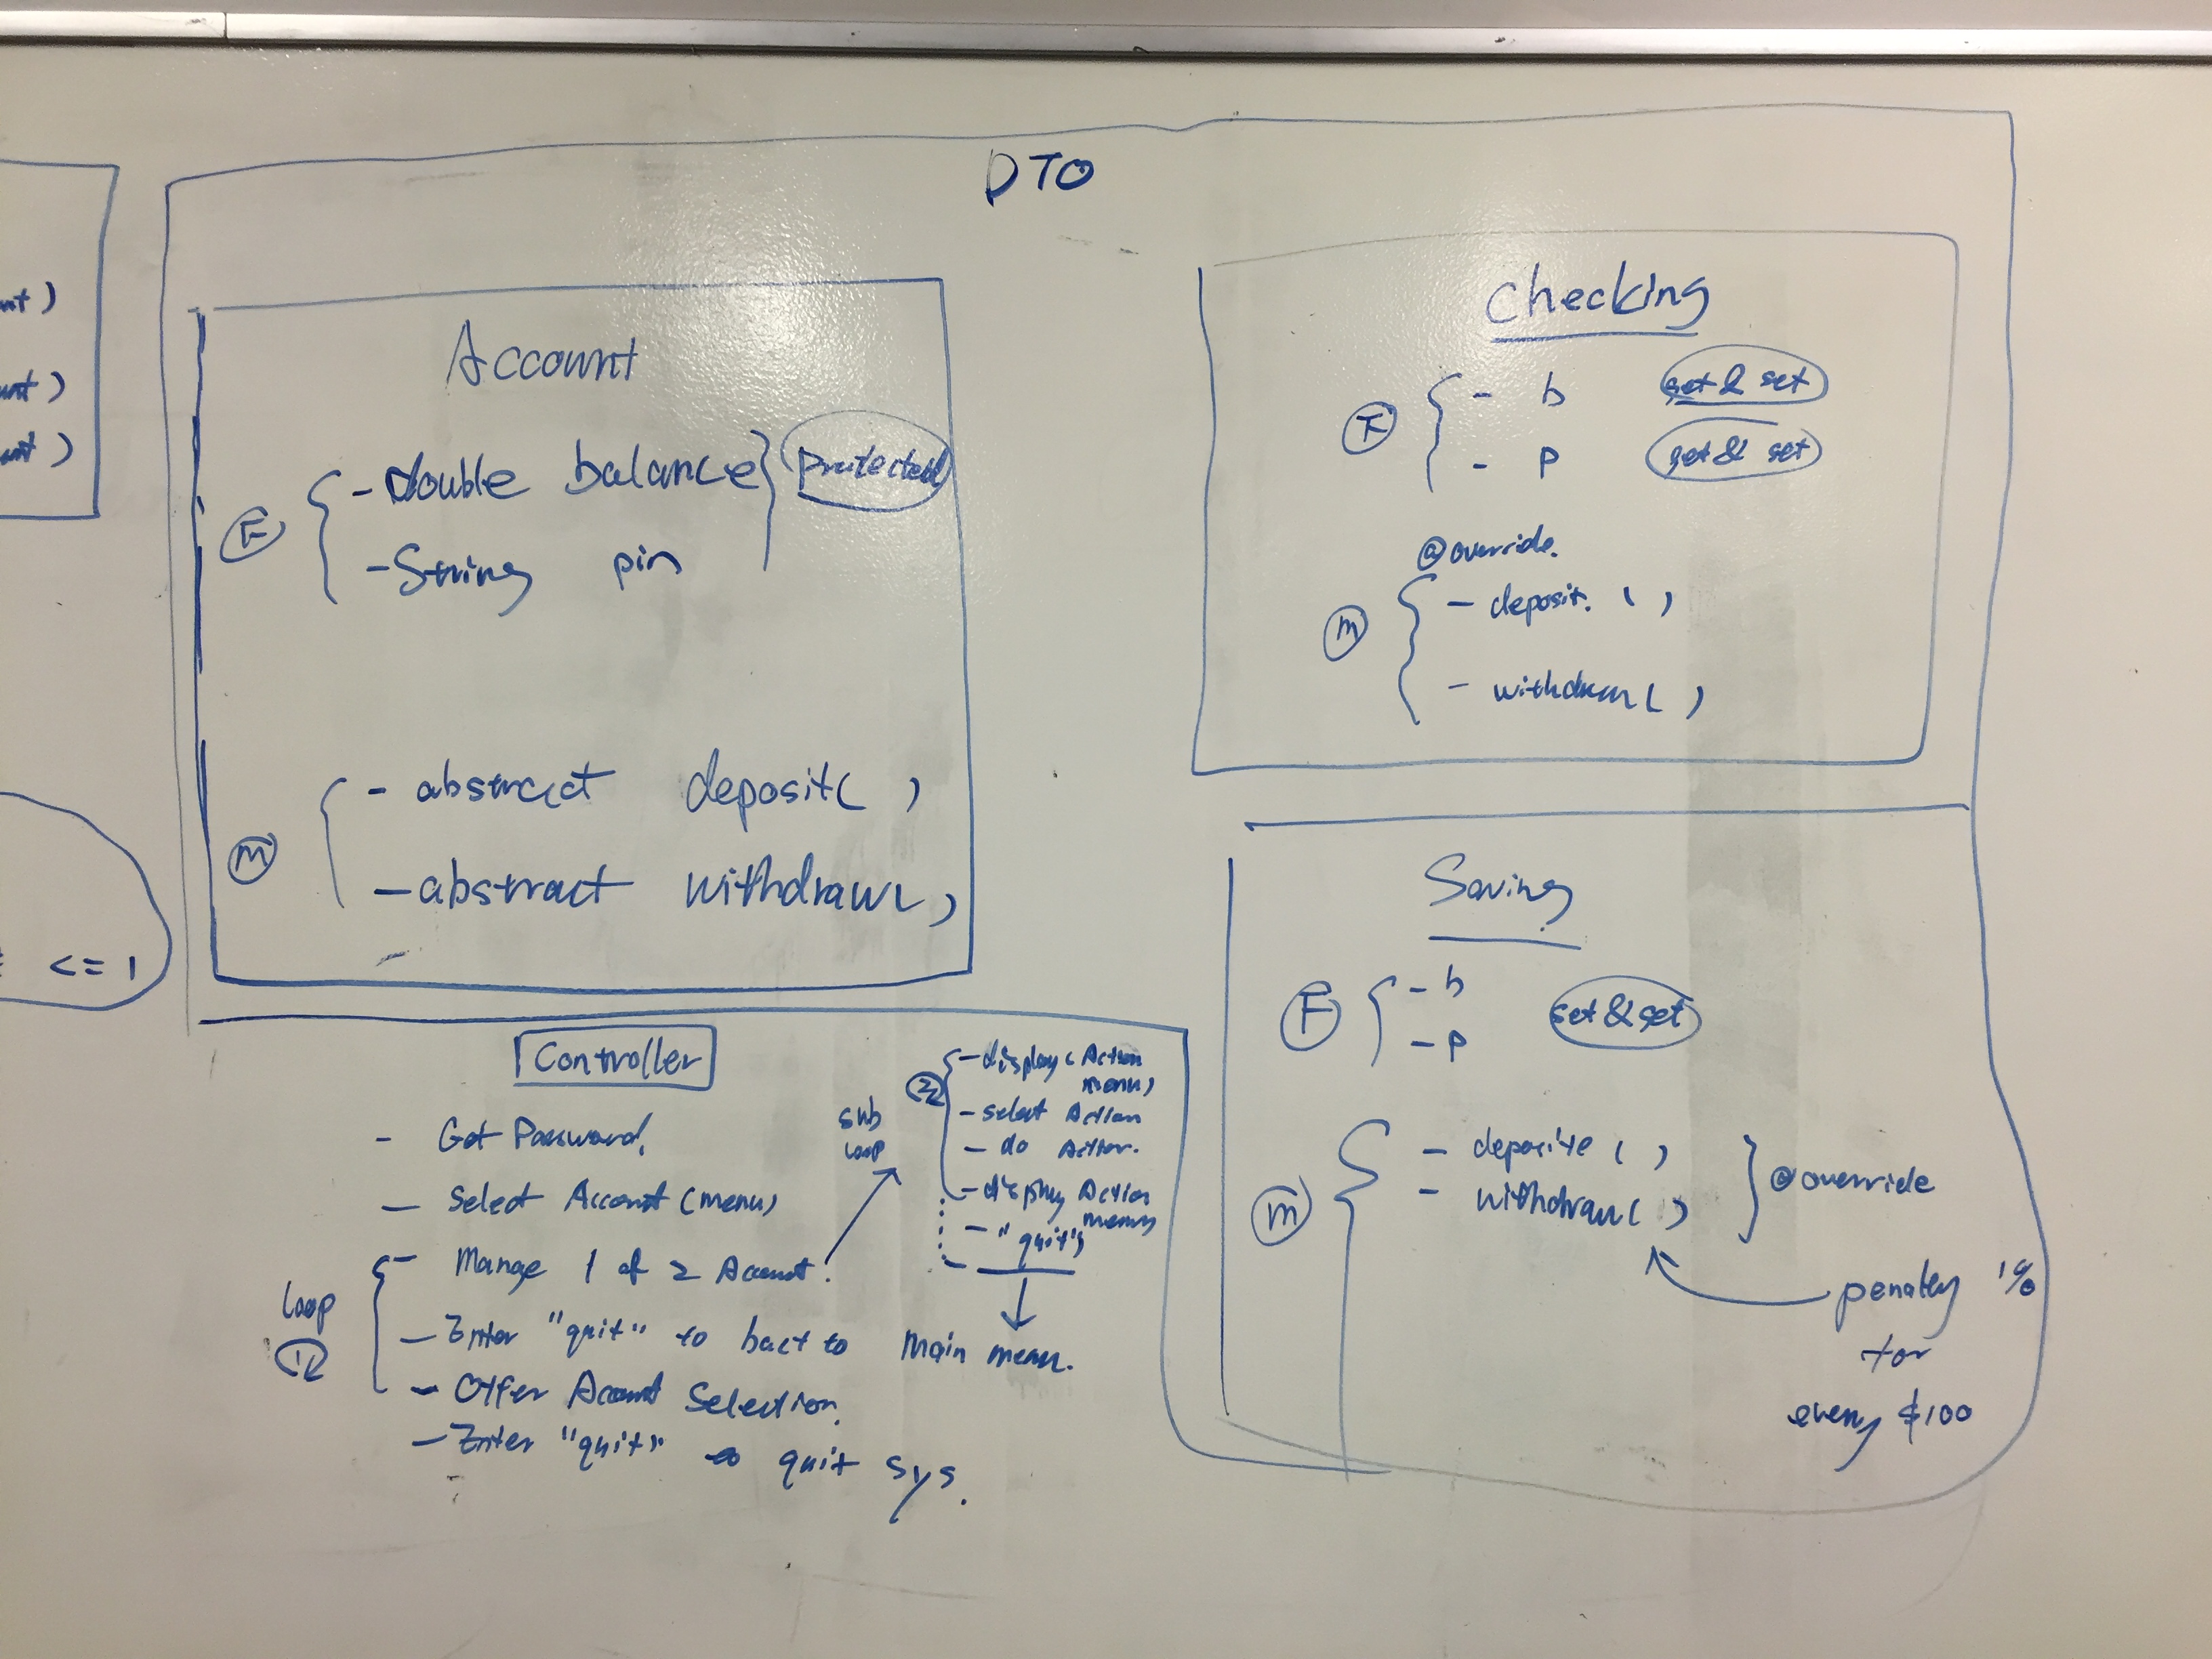 DTO
Account
F
- double balance
protected
- String pin
M
- abstract deposit( )
- abstract withdraw( )
Checking
F
- b get & set
- p get & set
@override.
M
- deposit. ( )
- withdraw( )
Saving
F
- b
- p
get & set
M
- deposite ( )
- withdraw( )
@override
penalty 1%
for
every $100
Controller
- Get Password.
- Select Account (menu)
loop
1
- Mange 1 of 2 Account.
- Enter "quit" to bact to Main menu.
- Offer Account Selection.
- Enter "quit" quit sys.
sub
loop
2
- display (Action
menu)
- select Action
- do Action.
- display Action
menu
- "quit"
<= 1